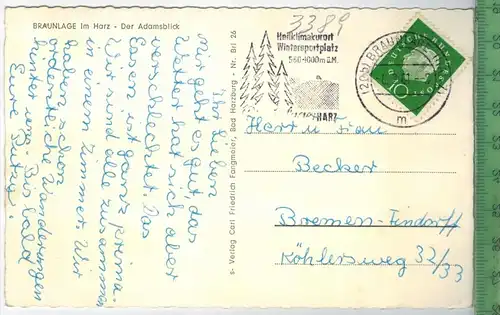 BRAUNLAGE im Harz - Der Adamsblick
3389
Heilklimakurort
Wintersportplatz
560-1000m ü.M.
HARZ
m
10
Ihr Lieben
Mir geht es gut, das
Wetter hat sich aber
verschlechtert. Das
Essen ist ganz prima.
Wir sind alle zusammen
in einem Zimmer. Wir
haben schon
ordentliche Wanderungen
hinter uns. Bis bald
Eure
s- Verlag Carl Friedrich Fangmeier, Bad Harzburg - Nr. Brl 26
Herrn u. Frau
Becker
Bremen-Findorff
Köhlersweg 32/33